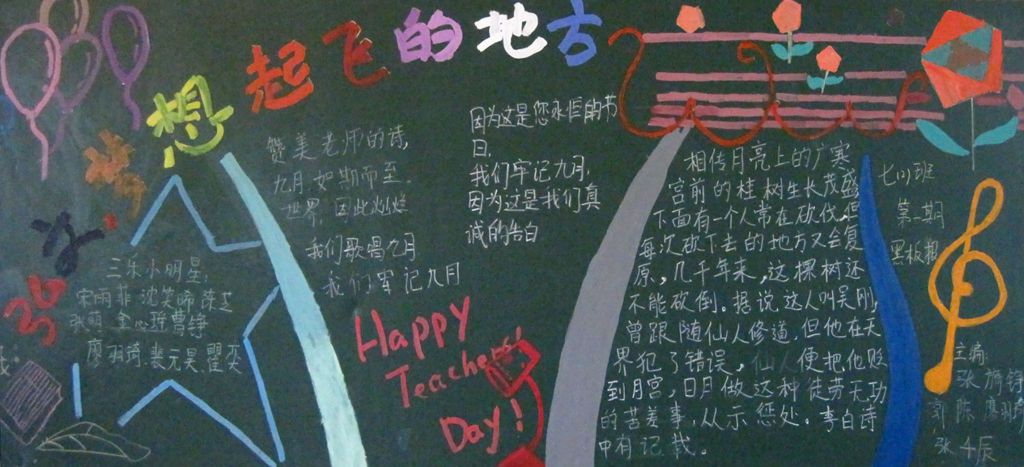 梦想起飞的地方
三乐小明星:
宋雨菲 沈笑
廖羽琦 裴元昊 瞿奕
赞美老师的诗,
九月如期而至.
世界,因此灿烂
我们歌唱九月
我们牢记九月
因为这是您永恒的节
日,
我们牢记九月,
因为这是我们真
诚的告白
Happy
Teachers'
Day!
相传月亮上的广寒
宫前的桂树生长茂盛
下面有一个人常在砍伐,但
每次砍下去的地方又会复
原,几千年来,这棵树还
不能砍倒。据说这人叫吴刚
曾跟随仙人修道,但他在天
界犯了错误,仙人便把他贬
到月宫,日日做这种徒劳无功
的苦差事,以示惩处。李白诗
中有记载。
班
第一期
黑板报
主编: